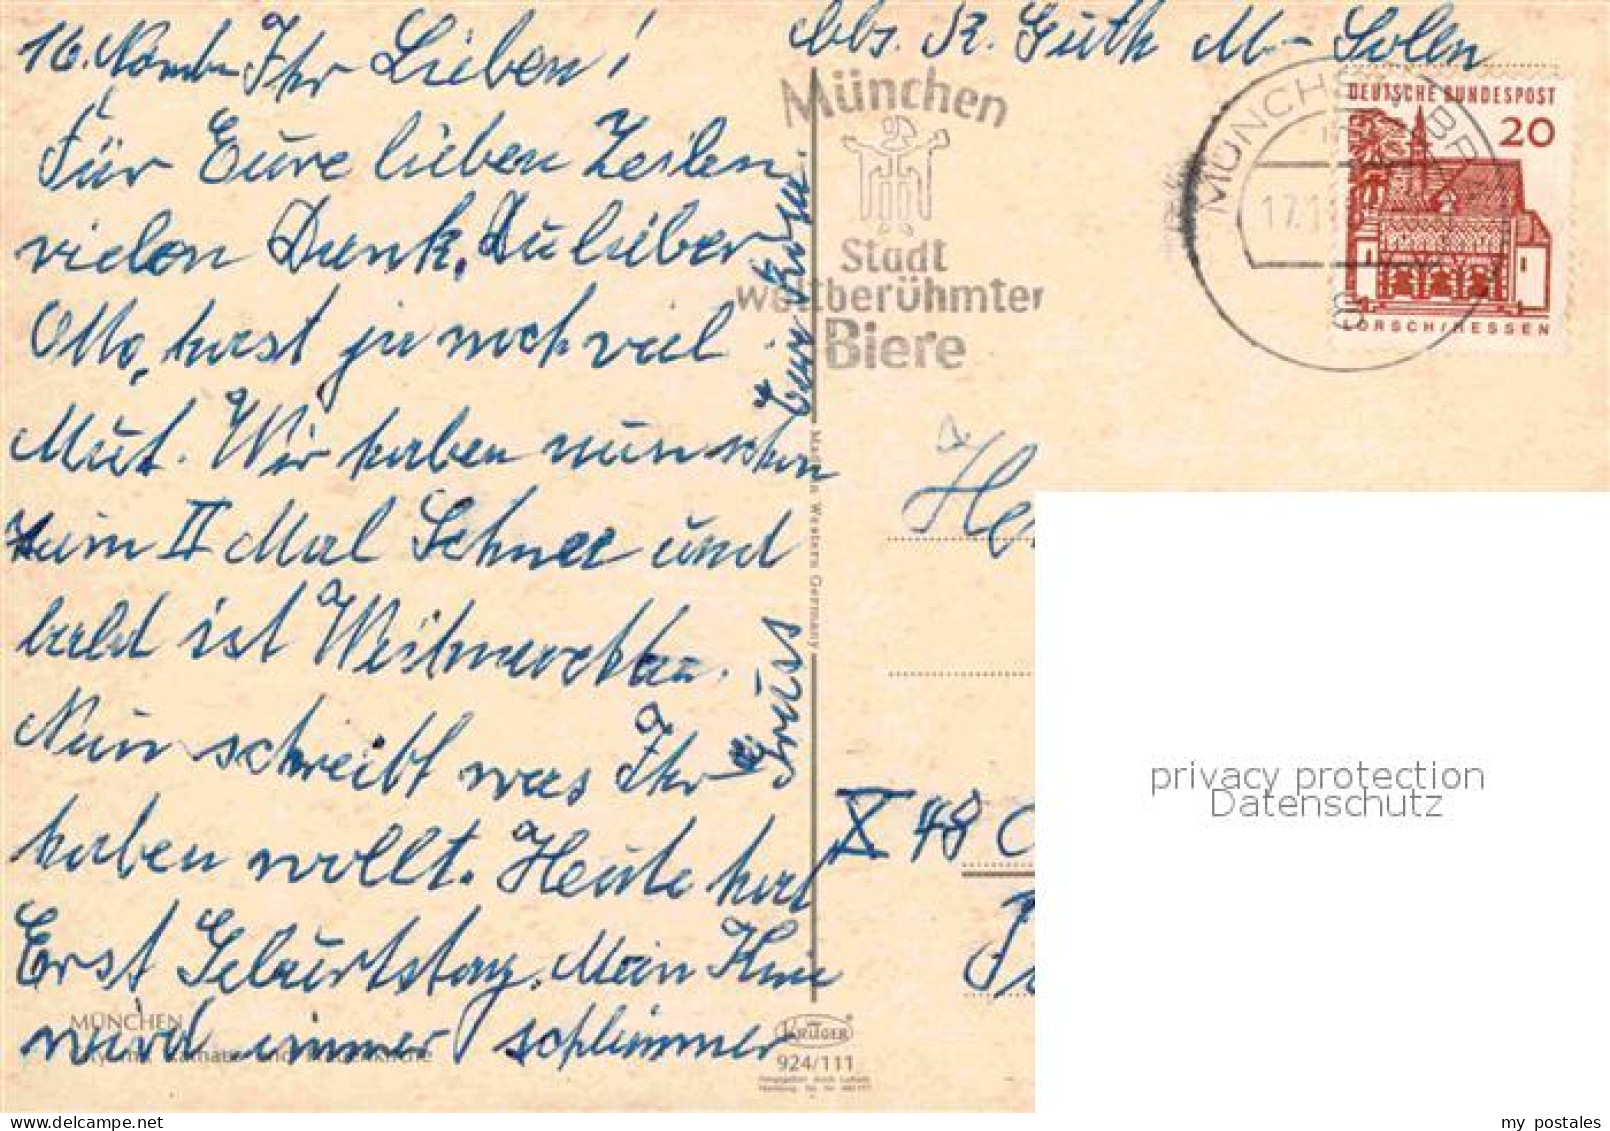 16. Novemb. Ihr Lieben!
Für Eure lieben Zeilen
vielen Dank. Du lieber
Otto, hast ja noch viel
Mut. Wir haben nun schon
zum II Mal Schnee und
bald ist Weihnachten.
Nun schreibt was Ihr
haben wollt. Heute hat
Erst Geburtstag. Mein Knie
wird immer schlimmer
Gruss
Eure Rosa
Abs. R. Guth M- Solln
München
Stadt
weltberühmter
Biere
MÜNCHEN
17.1
DEUTSCHE BUNDESPOST
20
LORSCH/HESSEN
Made in Western Germany
He
X 48
MÜNCHEN
KRÜGER
924/111
privacy protection
Datenschutz
my postales